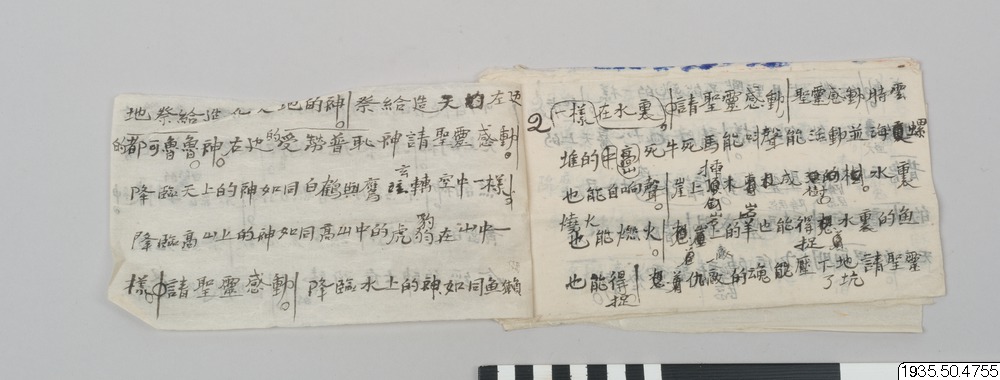 地祭給造化人地的神祭給造天的左边
的都可魯魯神。左边的愛 普耻神請聖靈感動。
降臨天上的神如同白鶴與鷹玄轉空中一樣。
降臨高山上的神如同高山中的虎豹在山中一
樣。請聖靈感動。降臨水上的神如同魚獺
2 一樣在水裏。請聖靈感動聖靈感動時雲
堆的中 死牛死馬能叫聲能活動並海螺
也能自响聲。崖上 木 能扎成 根。水裏
燒火
也能燃火。想 崖上的羊也能得捉想着水裏的魚
也能得捉 想着仇敵的魂能壓下地坑請聖靈
1935.50.4755